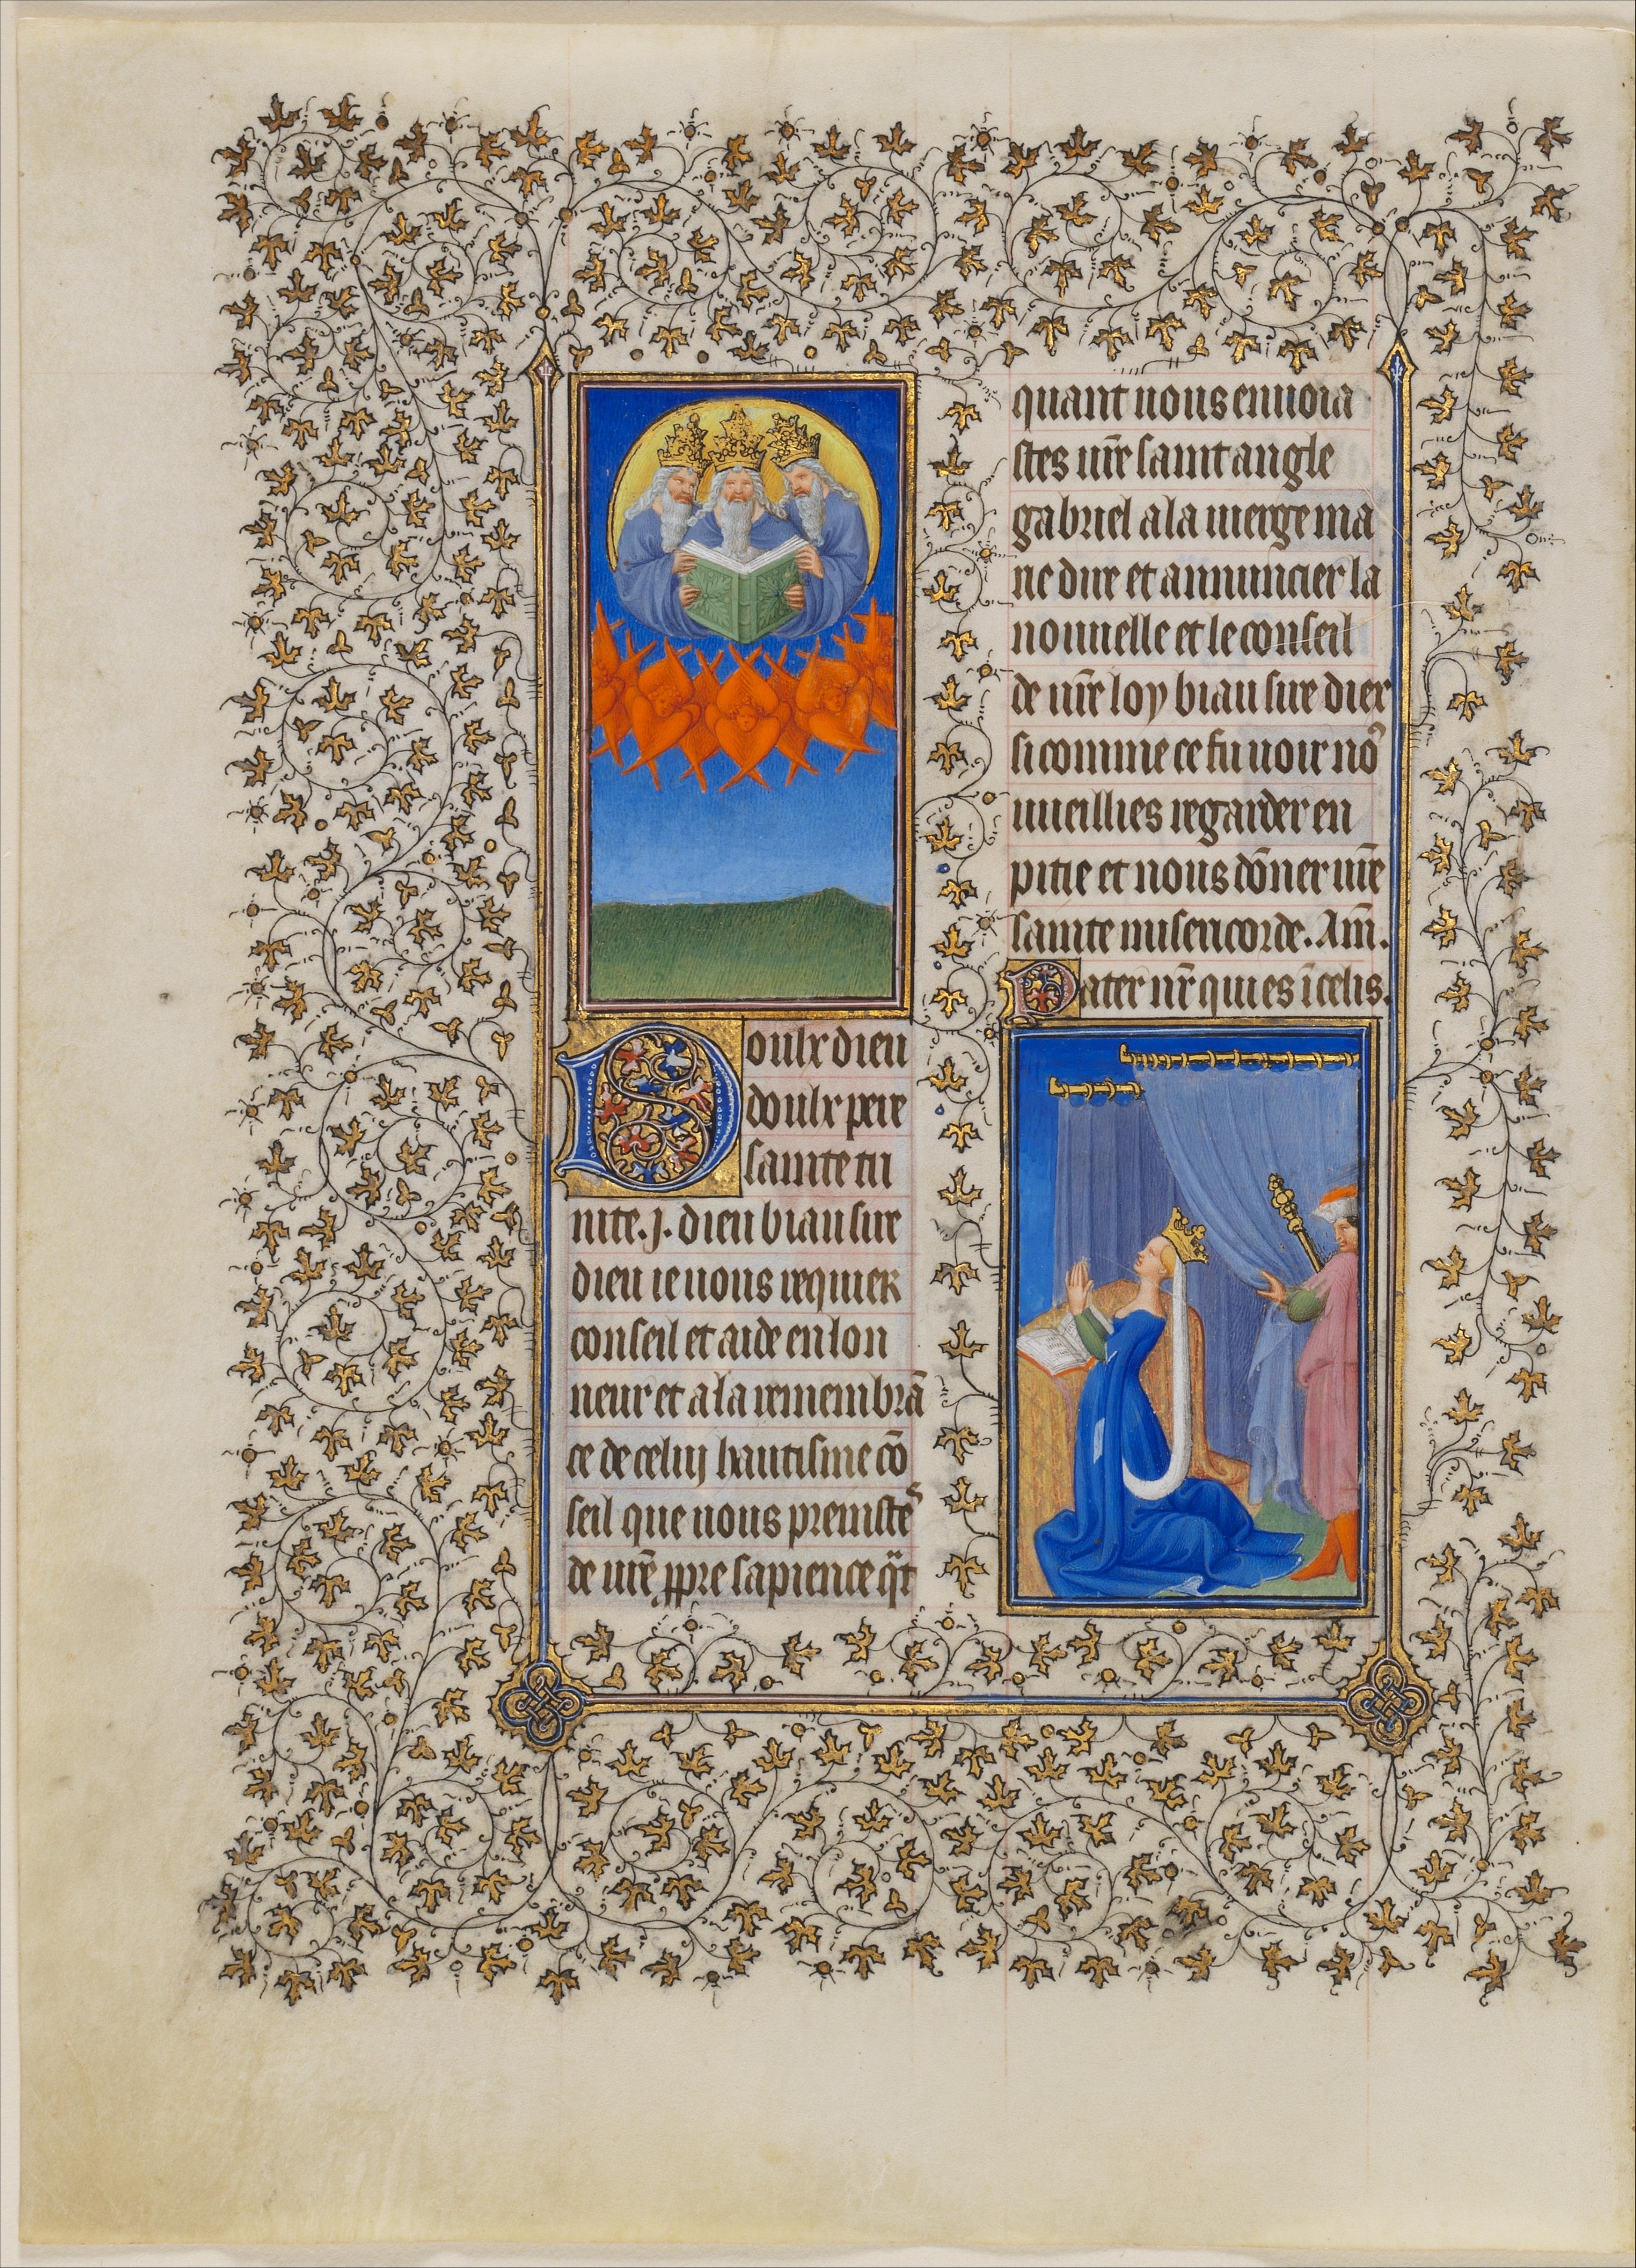 oulx dieu
doulx pere
sainte tri
nite .j. dieu biau sire
dieu ie vous requier
conseil et aide en lon
neur et a la remembrā
ce de celuy hautisme cō
seil que vous preniste
de vr̄e ppre sapience q̄t
quant vous enuoia
stes vr̄e saint angle
gabriel a la vierge ma
rie dire et annuncier la
nouuelle et le conseil
de vr̄e loy biau sire diex
si comme ce fu voir no⁹
vueillies regarder en
pitie et nous dōner vr̄e
sainte misericorde. Am̄.
Pater nr̄ qui es ī celis.